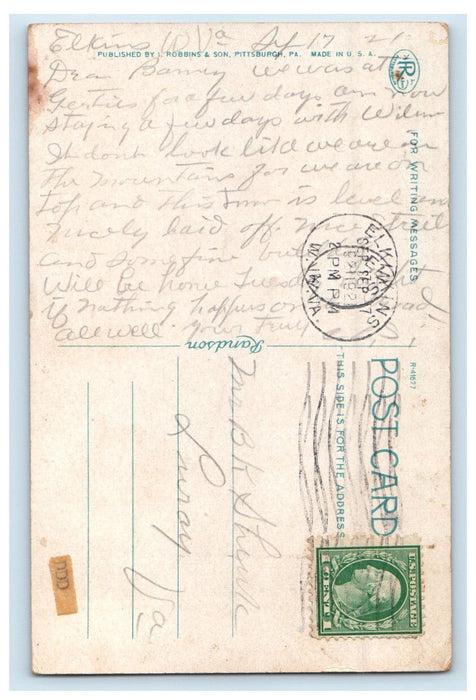 Elkins W Va Sep 17 21
PUBLISHED BY I. ROBBINS & SON, PITTSBURGH, PA. MADE IN U. S. A.
Dear Barney we was at
Gerties for a few days am now
staying a few days with Wilma
It dont look like we are on
the mountains for we are on
top and this Town is level and
nicely laid off. nice Streets
and some fine
Will be home Tuesday
if nothing happens on
all well Yours Truly
FOR WRITING MESSAGES
ELKINS
SEP 17
2 PM
W. VA.
Randson
R-41677
POST CARD
THIS SIDE IS FOR THE ADDRESS
Mr B K
Luray
Va
U.S. POSTAGE
1 CENT 1